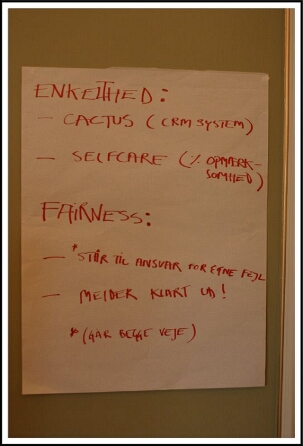 ENKELTHED:
- CACTUS (CRM SYSTEM)
- SELFCARE (% OPMÆRK-
SOMHED)
FAIRNESS:
- *STÅR TIL ANSVAR FOR EGNE FEJL
- MELDER KLART UD!
*(GÅR BEGGE VEJE)